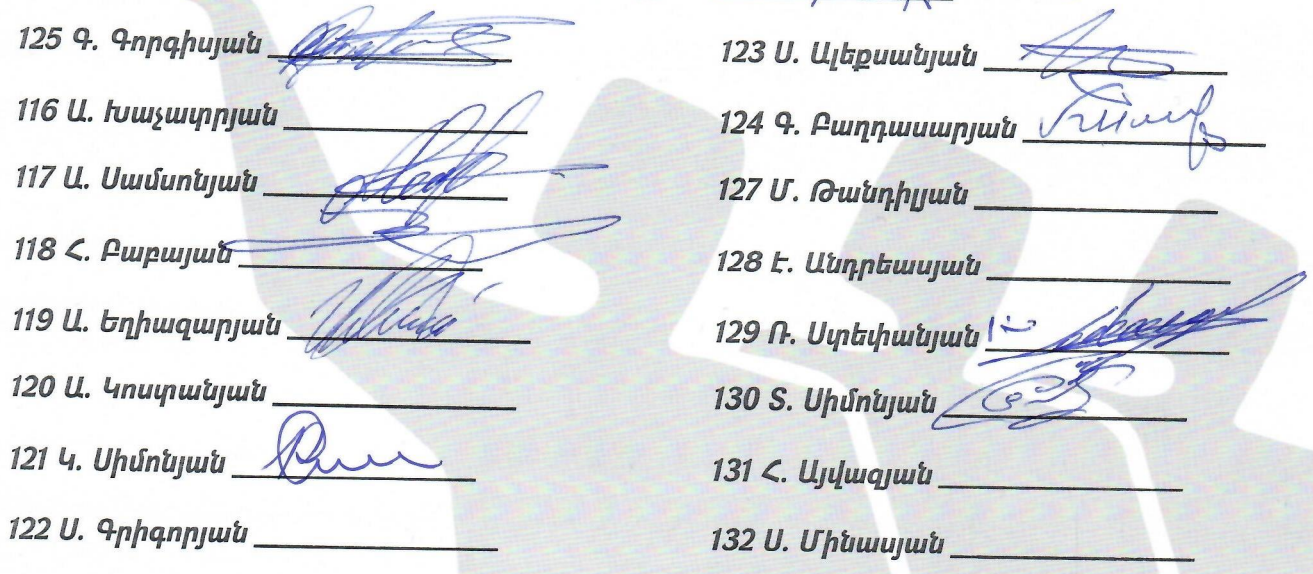 125 Գ. Գորգիսյան
116 Ա. Խաչատրյան
117 Ա. Սամսոնյան
118 Հ. Բաբայան
119 Ա. Եղիազարյան
120 Ա. Կոստանյան
121 Կ. Սիմոնյան
122 Ս. Գրիգորյան
123 Ս. Ալեքսանյան
124 Գ. Բաղդասարյան
127 Մ. Թանդիլյան
128 Է. Անդրեասյան
129 Ռ. Ստեփանյան
130 Տ. Սիմոնյան
131 Հ. Այվազյան
132 Ս. Մինասյան